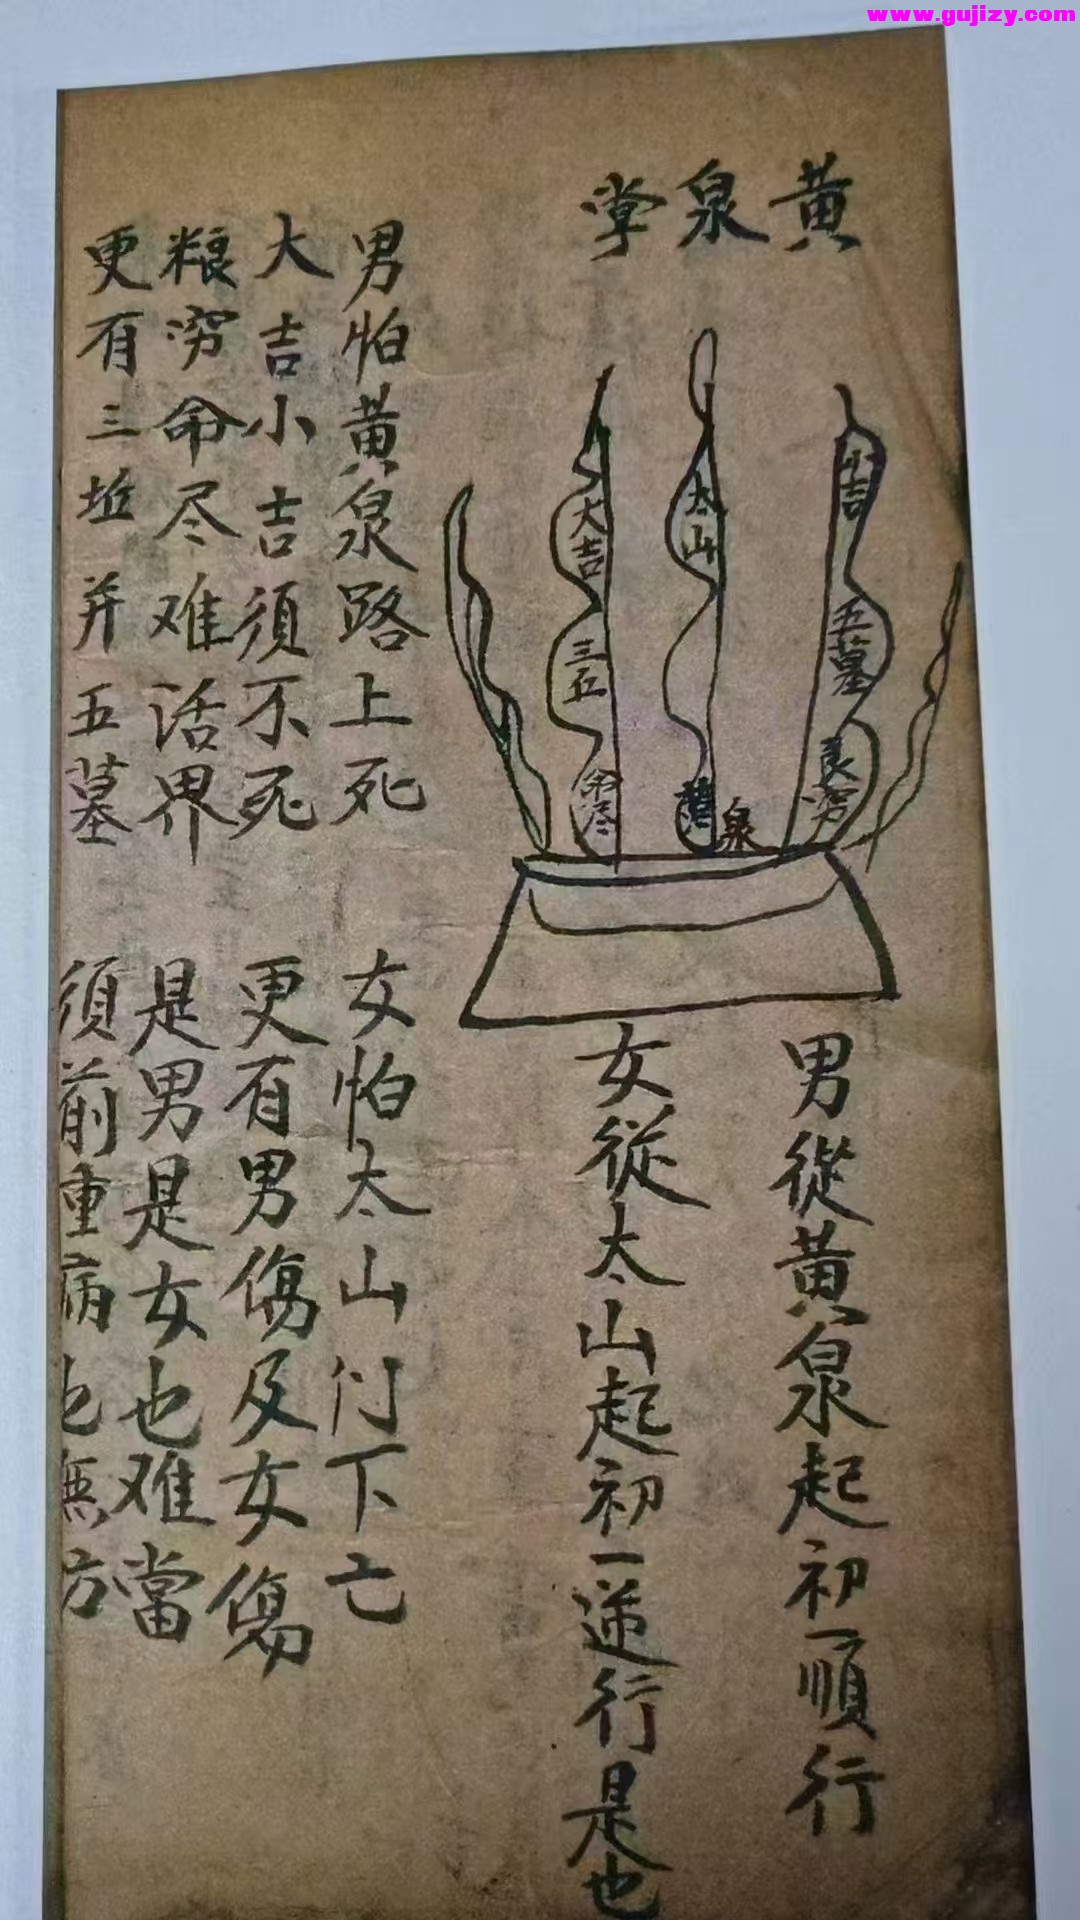 www.gujizy.com
黄泉掌
小吉
五墓
良穷
太山
黄泉
大吉
三丘
命尽
男從黄泉起初一順行
女從太山起初一逆行是也
男怕黄泉路上死
女怕太山门下亡
大吉小吉須不死
更有男傷及女傷
粮穷命尽难活界
是男是女也难當
更有三坵并五墓
須前重病也無方